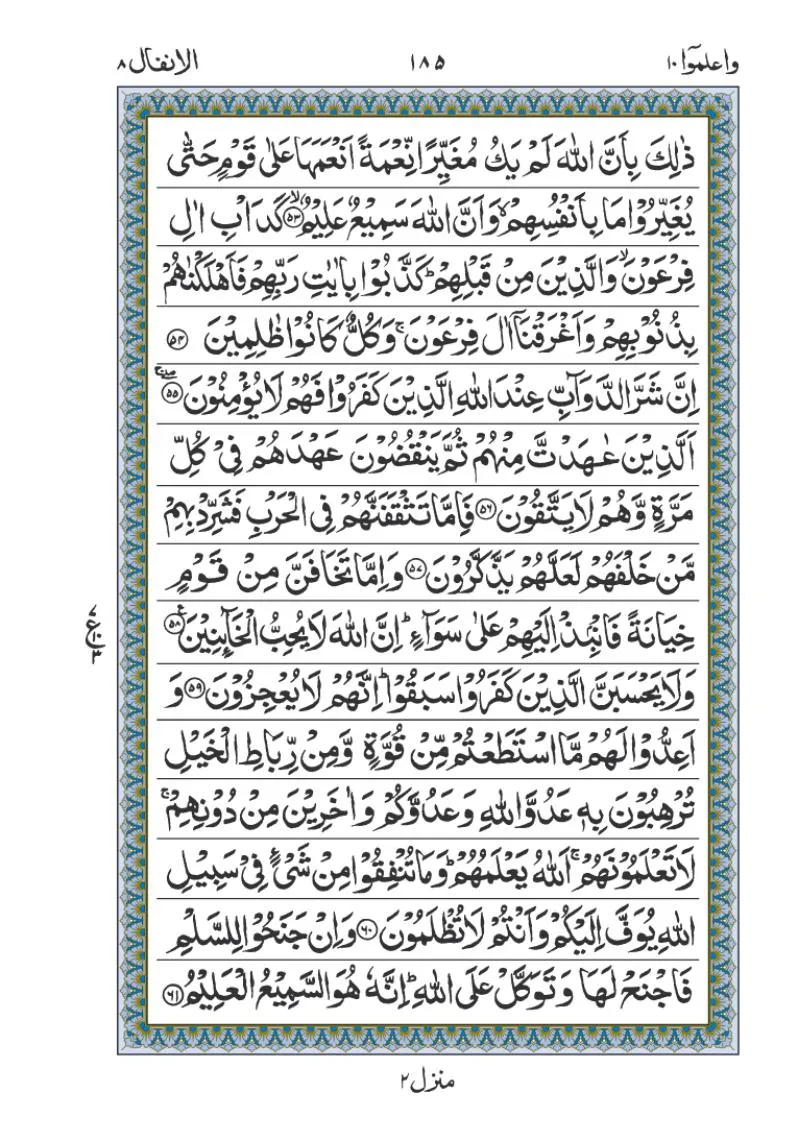 واعلموٓا ۱۰ ۱۸۵ الانفال ۸
ذٰلِكَ بِاَنَّ اللّٰهَ لَمْ يَكُ مُغَيِّرًا نِّعْمَةً اَنْعَمَهَا عَلٰى قَوْمٍ حَتّٰى
يُغَيِّرُوْا مَا بِاَنْفُسِهِمْۙ وَاَنَّ اللّٰهَ سَمِيْعٌ عَلِيْمٌۙ‏﴿۵۳﴾ كَدَاْبِ اٰلِ
فِرْعَوْنَۙ وَالَّذِيْنَ مِنْ قَبْلِهِمْؕ كَذَّبُوْا بِاٰيٰتِ رَبِّهِمْ فَاَهْلَكْنٰهُمْ
بِذُنُوْبِهِمْ وَاَغْرَقْنَاۤ اٰلَ فِرْعَوْنَۚ وَكُلٌّ كَانُوْا ظٰلِمِيْنَ ﴿۵۴﴾
اِنَّ شَرَّ الدَّوَآبِّ عِنْدَ اللّٰهِ الَّذِيْنَ كَفَرُوْا فَهُمْ لَا يُؤْمِنُوْنَ ۖۚ‏﴿۵۵﴾
اَلَّذِيْنَ عٰهَدْتَّ مِنْهُمْ ثُمَّ يَنْقُضُوْنَ عَهْدَهُمْ فِيْ كُلِّ
مَرَّةٍ وَّهُمْ لَا يَتَّقُوْنَ ﴿۵۶﴾ فَاِمَّا تَثْقَفَنَّهُمْ فِى الْحَرْبِ فَشَرِّدْ بِهِمْ
مَّنْ خَلْفَهُمْ لَعَلَّهُمْ يَذَّكَّرُوْنَ ﴿۵۷﴾ وَاِمَّا تَخَافَنَّ مِنْ قَوْمٍ
خِيَانَةً فَانْۢبِذْ اِلَيْهِمْ عَلٰى سَوَآءٍؕ اِنَّ اللّٰهَ لَا يُحِبُّ الْخَآئِنِيْنَ ﴿۵۸﴾
ع ۷ ۱۰ ۳
وَلَا يَحْسَبَنَّ الَّذِيْنَ كَفَرُوْا سَبَقُوْاؕ اِنَّهُمْ لَا يُعْجِزُوْنَ ﴿۵۹﴾ وَ
اَعِدُّوْا لَهُمْ مَّا اسْتَطَعْتُمْ مِّنْ قُوَّةٍ وَّمِنْ رِّبَاطِ الْخَيْلِ
تُرْهِبُوْنَ بِهٖ عَدُوَّ اللّٰهِ وَعَدُوَّكُمْ وَاٰخَرِيْنَ مِنْ دُوْنِهِمْۚ
لَا تَعْلَمُوْنَهُمْۚ اَللّٰهُ يَعْلَمُهُمْؕ وَمَا تُنْفِقُوْا مِنْ شَيْءٍ فِيْ سَبِيْلِ
اللّٰهِ يُوَفَّ اِلَيْكُمْ وَاَنْتُمْ لَا تُظْلَمُوْنَ ﴿۶۰﴾ وَاِنْ جَنَحُوْا لِلسَّلْمِ
فَاجْنَحْ لَهَا وَتَوَكَّلْ عَلَى اللّٰهِؕ اِنَّهٗ هُوَ السَّمِيْعُ الْعَلِيْمُ ﴿۶۱﴾
منزل ۲